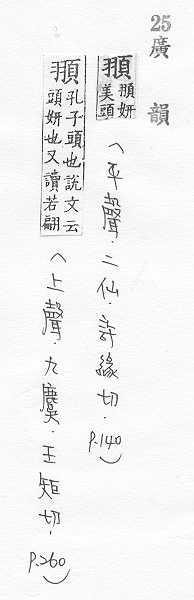 25 廣韻
頨 頨妍美頭 (平聲.二仙.許緣切.P.140)
頨 孔子頭也說文云頭妍也又讀若翩 (上聲.九麌.王矩切.P.260)